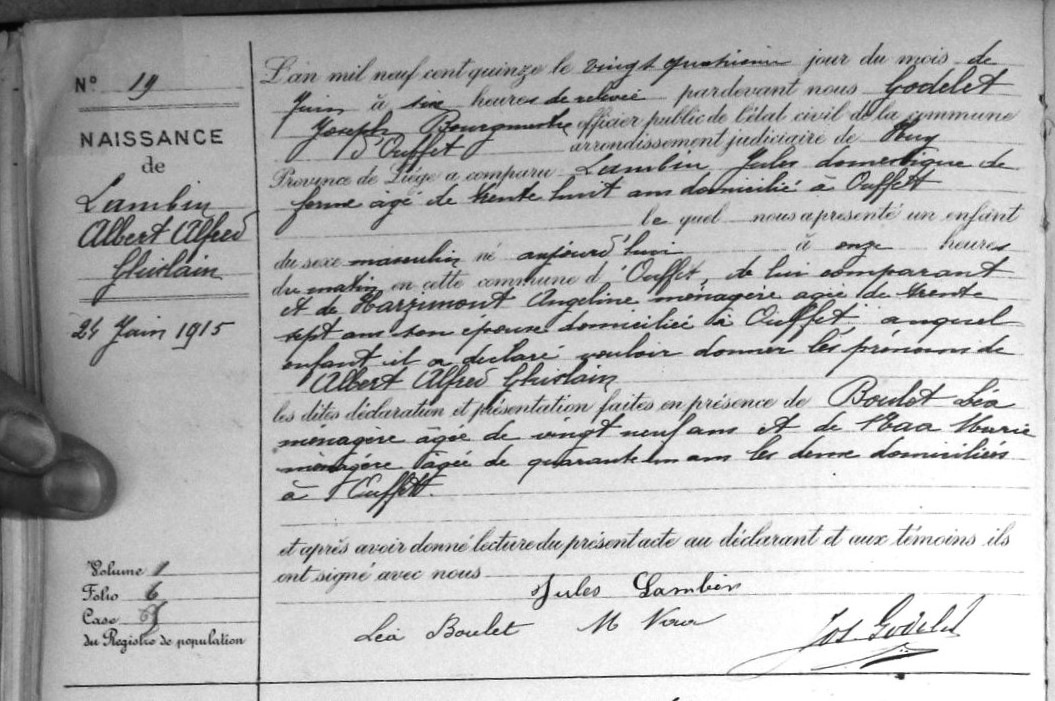 N° 19
NAISSANCE
de
Lambin
Albert Alfred
Ghislain
24 Juin 1915
Volume 1
Folio 6
Case
du Registre de population
L'an mil neuf cent quinze le vingt quatrième jour du mois de
Juin à six heures de relevée pardevant nous Godelet
Joseph Bourgmestre officier public de l'état civil de la commune
d'Ouffet arrondissement judiciaire de Huy
Province de Liége a comparu Lambin Jules domestique de
ferme agé de trente huit ans domicilié à Ouffet
le quel nous a presenté un enfant
du sexe masculin né aujourd'hui à onze heures
du matin en cette commune d'Ouffet, de lui comparant
et de Harzimont Angeline ménagère agée de trente
sept ans son épouse domiciliée à Ouffet, auquel
enfant il a déclaré vouloir donner les prénoms de
Albert Alfred Ghislain
les dites déclaration et présentation faites en présence de Boulet Léa
ménagère âgée de vingt neuf ans et de Marie
ménagère âgée de quarante un ans les deux domiciliées
à Ouffet.
et après avoir donné lecture du présent acte au déclarant et aux témoins ils
ont signé avec nous
Jules Lambin
Léa Boulet M
Jos. Godelet